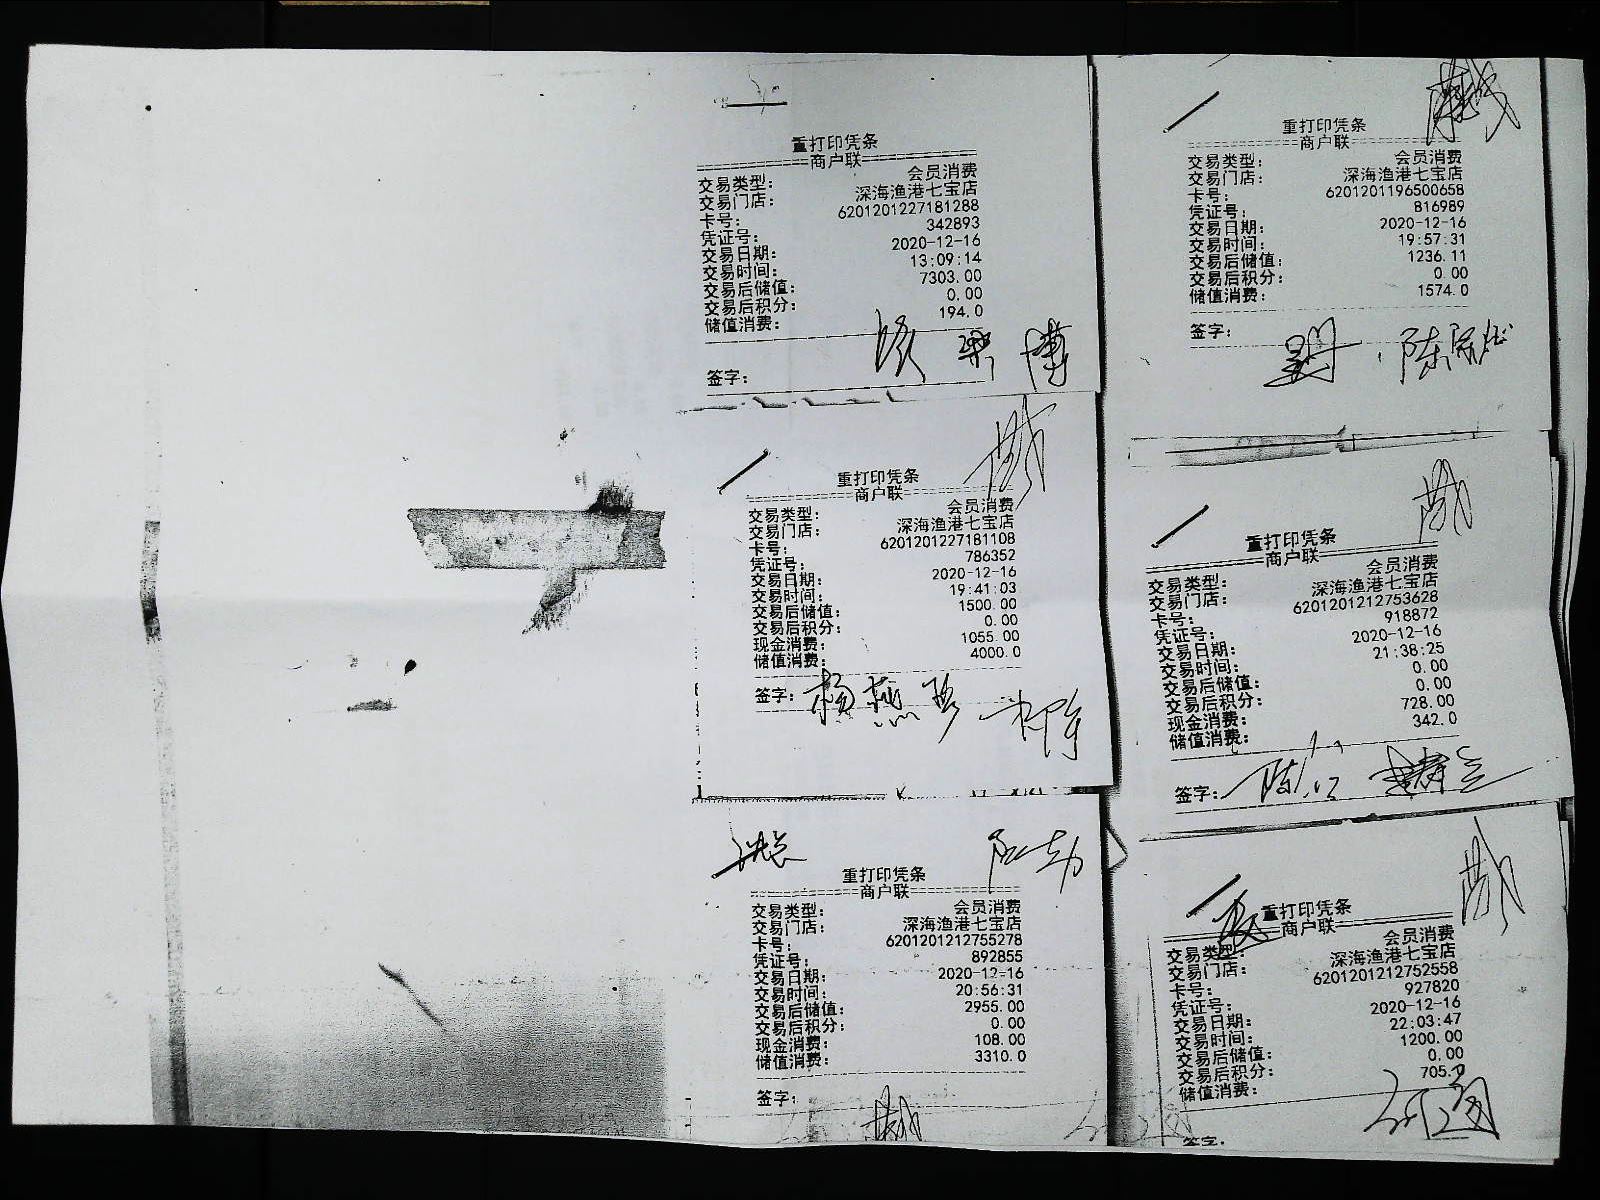 重打印凭条
商户联
交易类型： 会员消费
交易门店： 深海渔港七宝店
卡号： 6201201227181288
凭证号： 342893
交易日期： 2020-12-16
交易时间： 13:09:14
交易后储值： 7303.00
交易后积分： 0.00
储值消费： 194.0
签字：
重打印凭条
商户联
交易类型： 会员消费
交易门店： 深海渔港七宝店
卡号： 6201201227181108
凭证号： 786352
交易日期： 2020-12-16
交易时间： 19:41:03
交易后储值： 1500.00
交易后积分： 0.00
现金消费： 1055.00
储值消费： 4000.0
签字： 杨燕
重打印凭条
商户联
交易类型： 会员消费
交易门店： 深海渔港七宝店
卡号： 6201201212755278
凭证号： 892855
交易日期： 2020-12-16
交易时间： 20:56:31
交易后储值： 2955.00
交易后积分： 0.00
现金消费： 108.00
储值消费： 3310.0
签字：
重打印凭条
商户联
交易类型： 会员消费
交易门店： 深海渔港七宝店
卡号： 6201201196500658
凭证号： 816989
交易日期： 2020-12-16
交易时间： 19:57:31
交易后储值： 1236.11
交易后积分： 0.00
储值消费： 1574.0
签字： 陈
重打印凭条
商户联
交易类型： 会员消费
交易门店： 深海渔港七宝店
卡号： 6201201212753628
凭证号： 918872
交易日期： 2020-12-16
交易时间： 21:38:25
交易后储值： 0.00
交易后积分： 0.00
现金消费： 728.00
储值消费： 342.0
签字： 陈
重打印凭条
商户联
交易类型： 会员消费
交易门店： 深海渔港七宝店
卡号： 6201201212752558
凭证号： 927820
交易日期： 2020-12-16
交易时间： 22:03:47
交易后储值： 1200.00
交易后积分： 0.00
储值消费： 705.
签字：